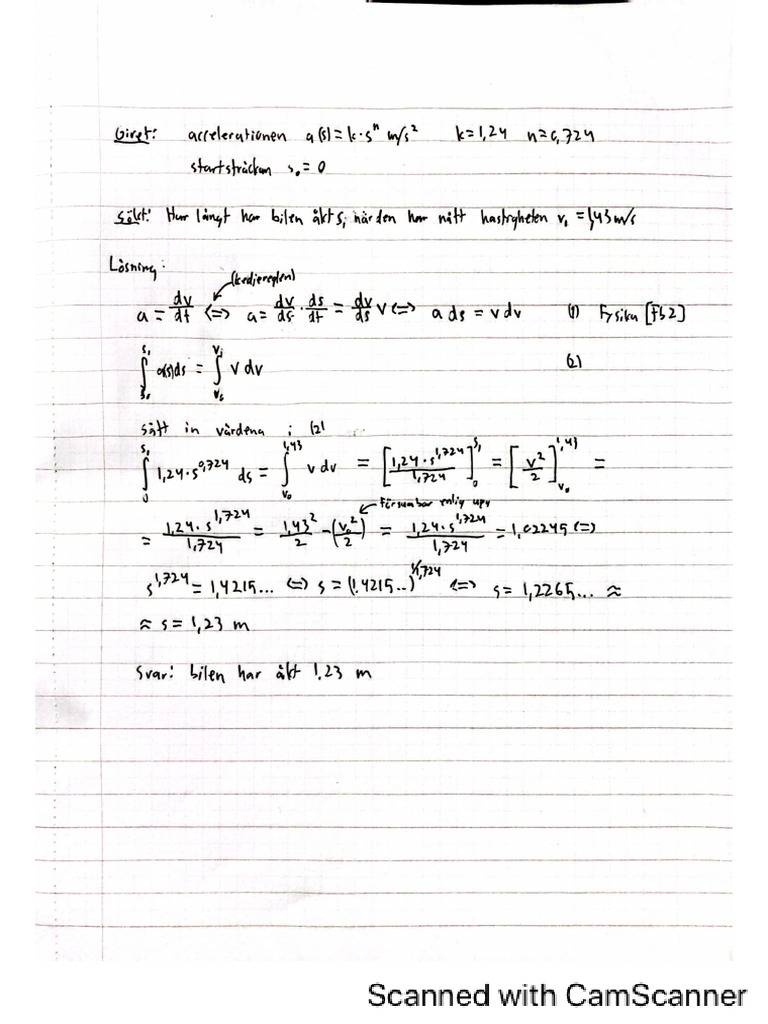 Givet: accelerationen a(s) = k·s^n m/s² k=1,24 n=0,724
startsträckan s₀ = 0
Sökt: Hur långt har bilen åkt s₁ när den har nått hastigheten v₁ = 1,43 m/s
Lösning:
(kedjeregeln)
a = dv/dt <=> a = dv/ds · ds/dt = dv/ds v <=> a ds = v dv (1) Fysika [Fb2]
∫_{s₀}^{s₁} a(s)ds = ∫_{v₀}^{v₁} v dv (2)
sätt in värdena i (2)
∫_0^{s₁} 1,24·s^{0,724} ds = ∫_{v₀}^{1,43} v dv = [1,24·s^{1,724}/1,724]_0^{s₁} = [v²/2]_{v₀}^{1,43} =
försumbar enlig upv
= 1,24·s^{1,724}/1,724 = 1,43²/2 - (v₀²/2) = 1,24·s^{1,724}/1,724 = 1,02245 <=>
s^{1,724} = 1,4215... <=> s = (1.4215..)^{1/1,724} <=> s = 1,2265... ≈
≈ s = 1,23 m
Svar: bilen har åkt 1.23 m
Scanned with CamScanner